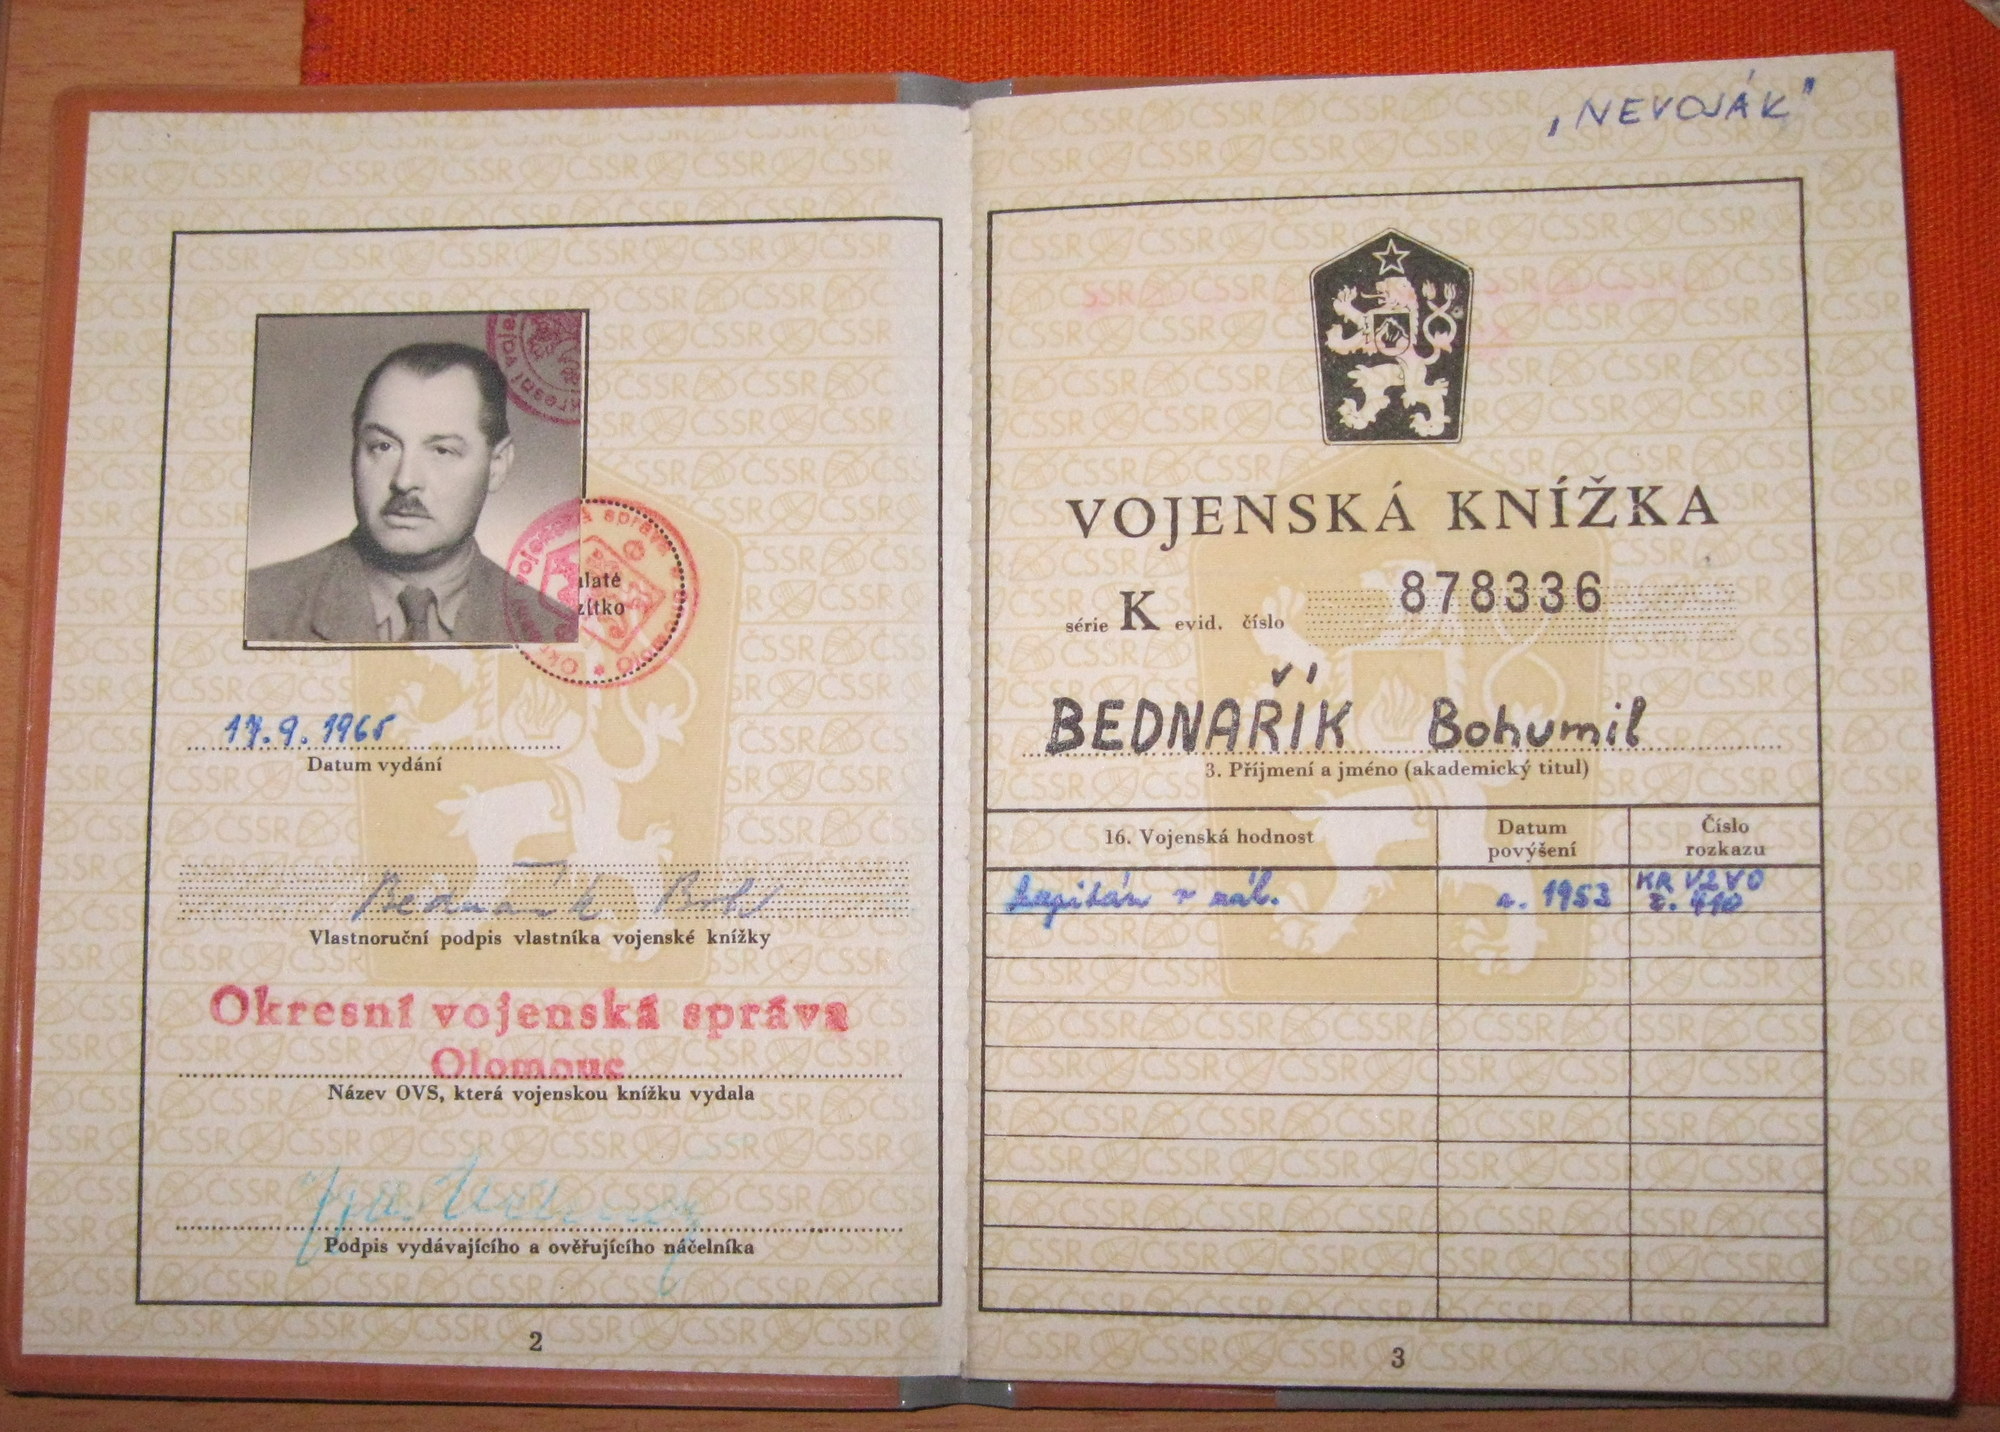 17.9.1965
Datum vydání
Bednařík Boh
Vlastnoruční podpis vlastníka vojenské knížky
Okresní vojenská správa
Olomouc
Název OVS, která vojenskou knížku vydala
Podpis vydávajícího a ověřujícího náčelníka
2
„NEVOJÁK"
VOJENSKÁ KNÍŽKA
série K evid. číslo 878336
BEDNAŘÍK Bohumil
3. Příjmení a jméno (akademický titul)
16. Vojenská hodnost
Datum
povýšení
Číslo
rozkazu
kapitán v zál.
r. 1953
KR VZVO
č. 410
3